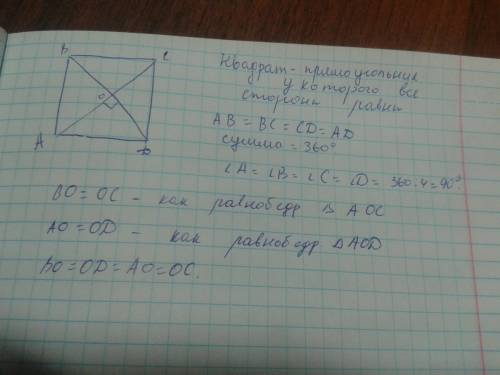 B C
O
A D
Квадрат - прямоугольник
у которого все
стороны равны
AB = BC = CD = AD
сумма = 360°
∠A = ∠B = ∠C = ∠D = 360:4 = 90°
BO = OC - как равнобедр Δ AOC
AO = OD - как равнобедр Δ AOD
BO = OD = AO = OC.